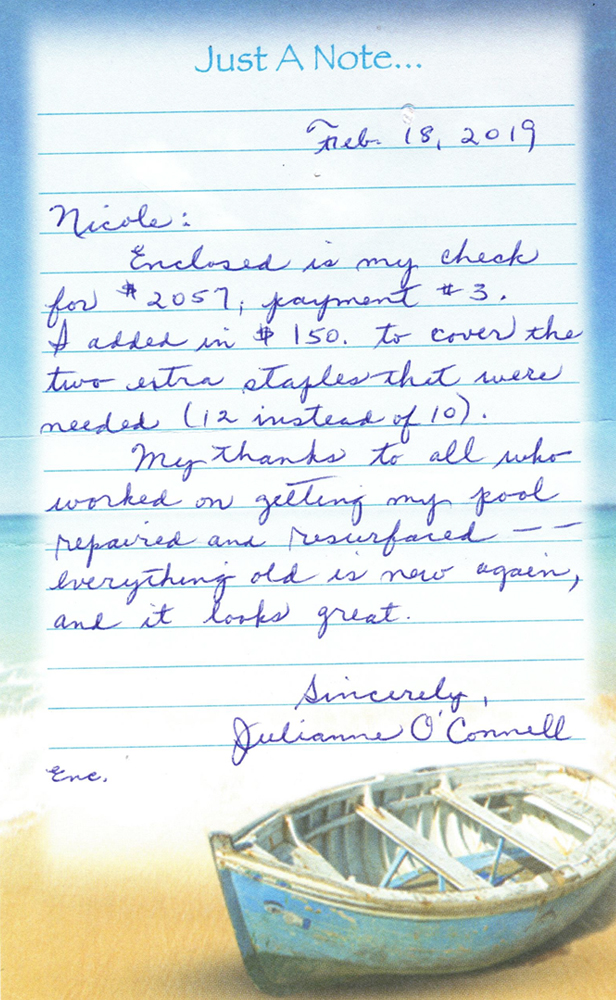 Just A Note...
Feb. 18, 2019
Nicole:
Enclosed is my check
for $2057, payment #3.
I added in $150. to cover the
two extra staples that were
needed (12 instead of 10).
My thanks to all who
worked on getting my pool
repaired and resurfaced --
everything old is new again,
and it looks great.
Sincerely,
Julianne O'Connell
Enc.